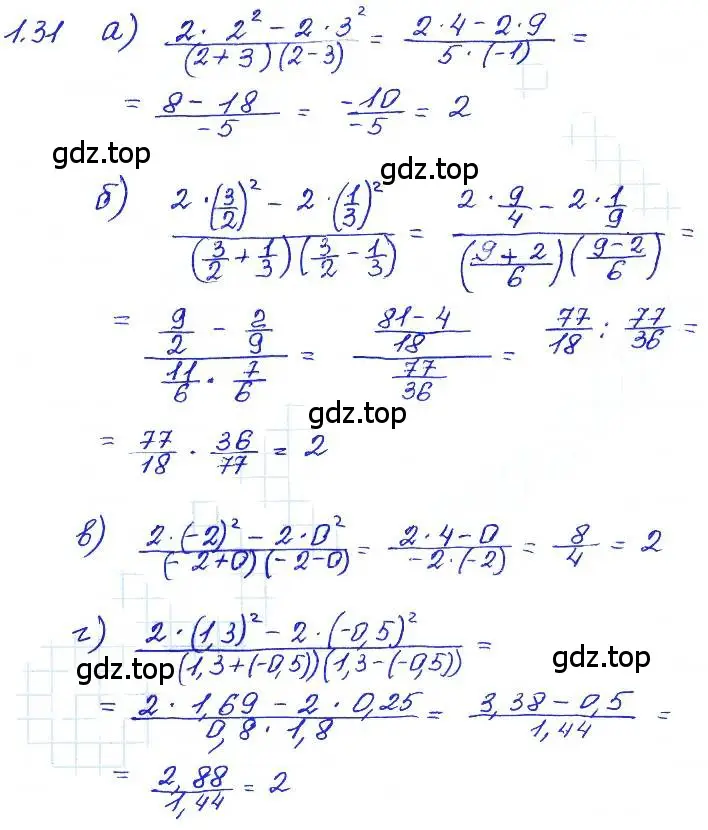 1.31 а) (2 · 2² − 2 · 3²)/((2 + 3)(2 − 3)) = (2 · 4 − 2 · 9)/(5 · (−1)) =
= (8 − 18)/(−5) = (−10)/(−5) = 2
gdz.top
gdz.top
б) (2 · (3/2)² − 2 · (1/3)²)/((3/2 + 1/3)(3/2 − 1/3)) = (2 · 9/4 − 2 · 1/9)/(((9 + 2)/6)((9 − 2)/6)) =
= (9/2 − 2/9)/(11/6 · 7/6) = ((81 − 4)/18)/(77/36) = 77/18 : 77/36 =
gdz.top
= 77/18 · 36/77 = 2
в) (2 · (−2)² − 2 · 0²)/((−2 + 0)(−2 − 0)) = (2 · 4 − 0)/(−2 · (−2)) = 8/4 = 2
г) (2 · (1,3)² − 2 · (−0,5)²)/((1,3 + (−0,5))(1,3 − (−0,5))) =
gdz.top
gdz.top
= (2 · 1,69 − 2 · 0,25)/(0,8 · 1,8) = (3,38 − 0,5)/(1,44) =
= 2,88/1,44 = 2